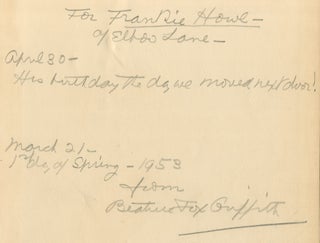 For Frankie Howl -
of Elbow Lane -
April 30 -
His birthday the day we moved next door!
March 21 -
1st day of Spring - 1953
from
Beatrice Fox Griffith